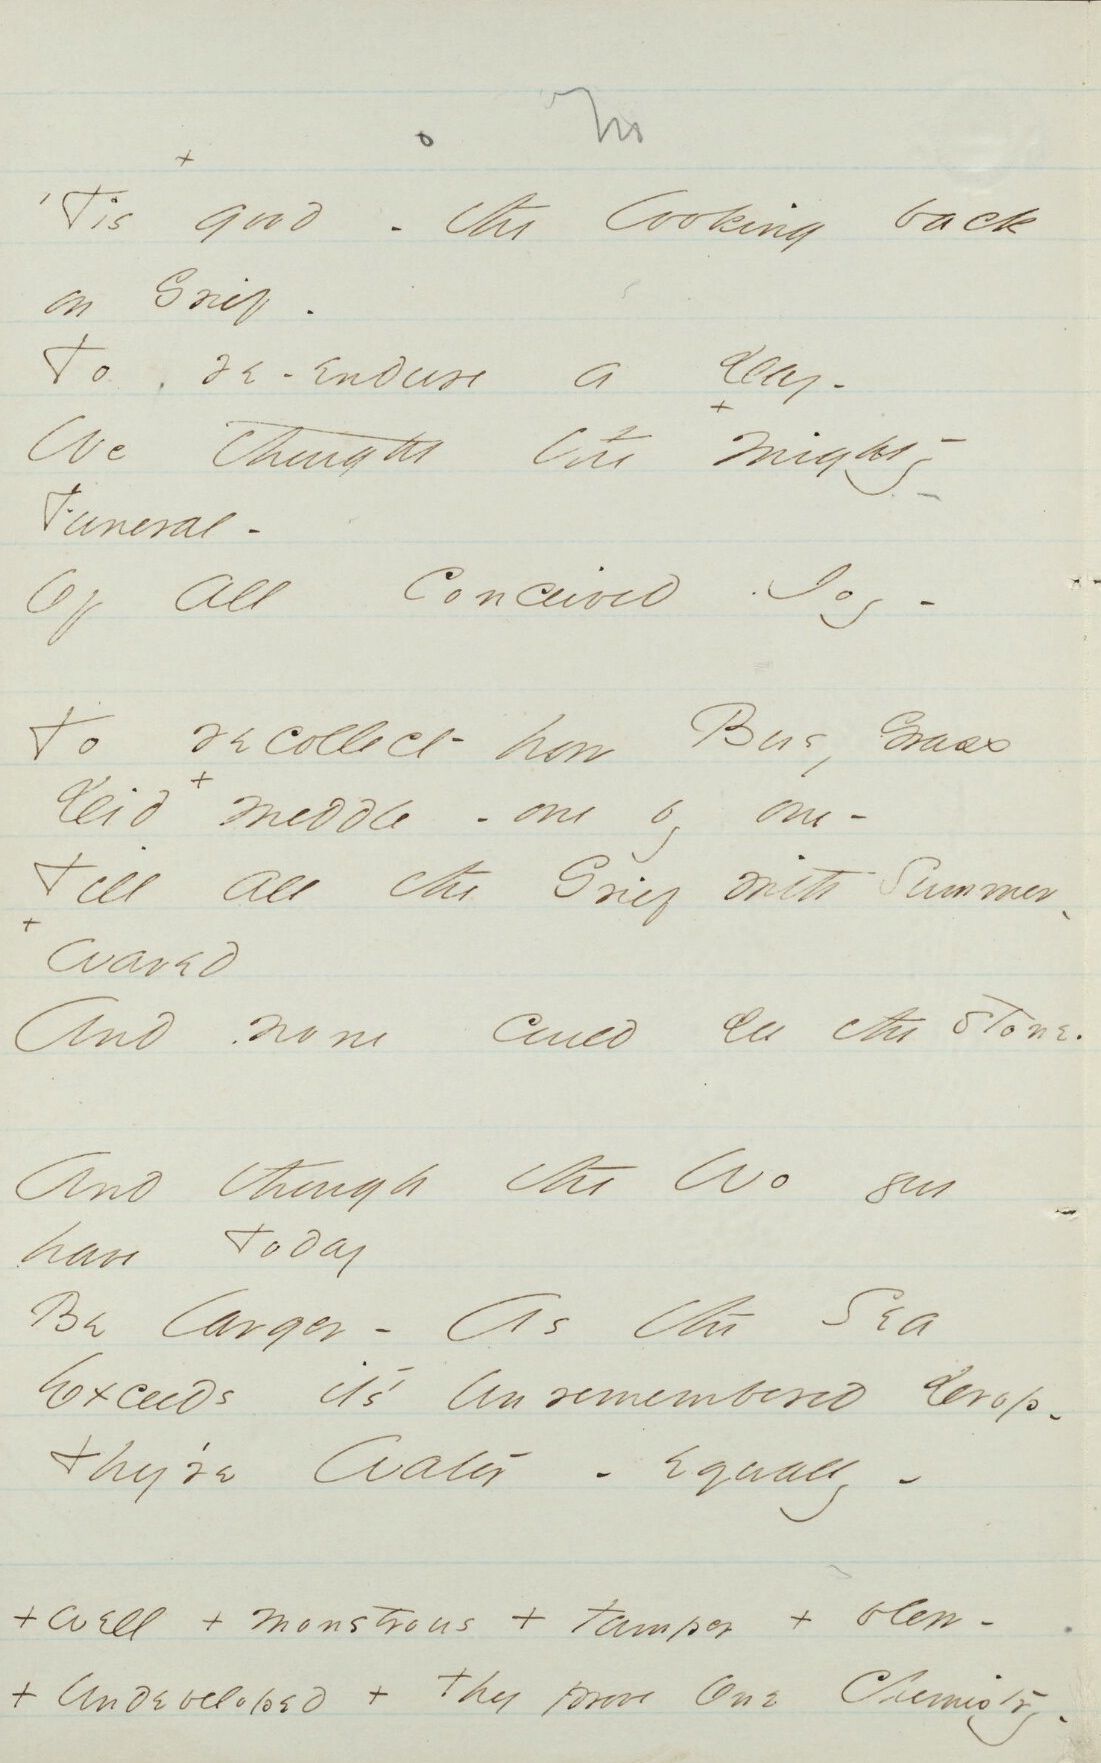 'Tis good - the looking back
on Grief -
To re-endure a Day -
We thought the mighty
Funeral -
Of all Conceived Joy -
To recollect how Busy Grass
Did meddle - one by one -
Till all the Grief with Summer -
waved
And none could see the stone.
And though the Wo you
have Today
Be larger - As the Sea
Exceeds it's unremembered drop -
They're Water - equally -
+ Well + monstrous + tamper + blew -
+ Undeveloped + They prove One Chemistry -